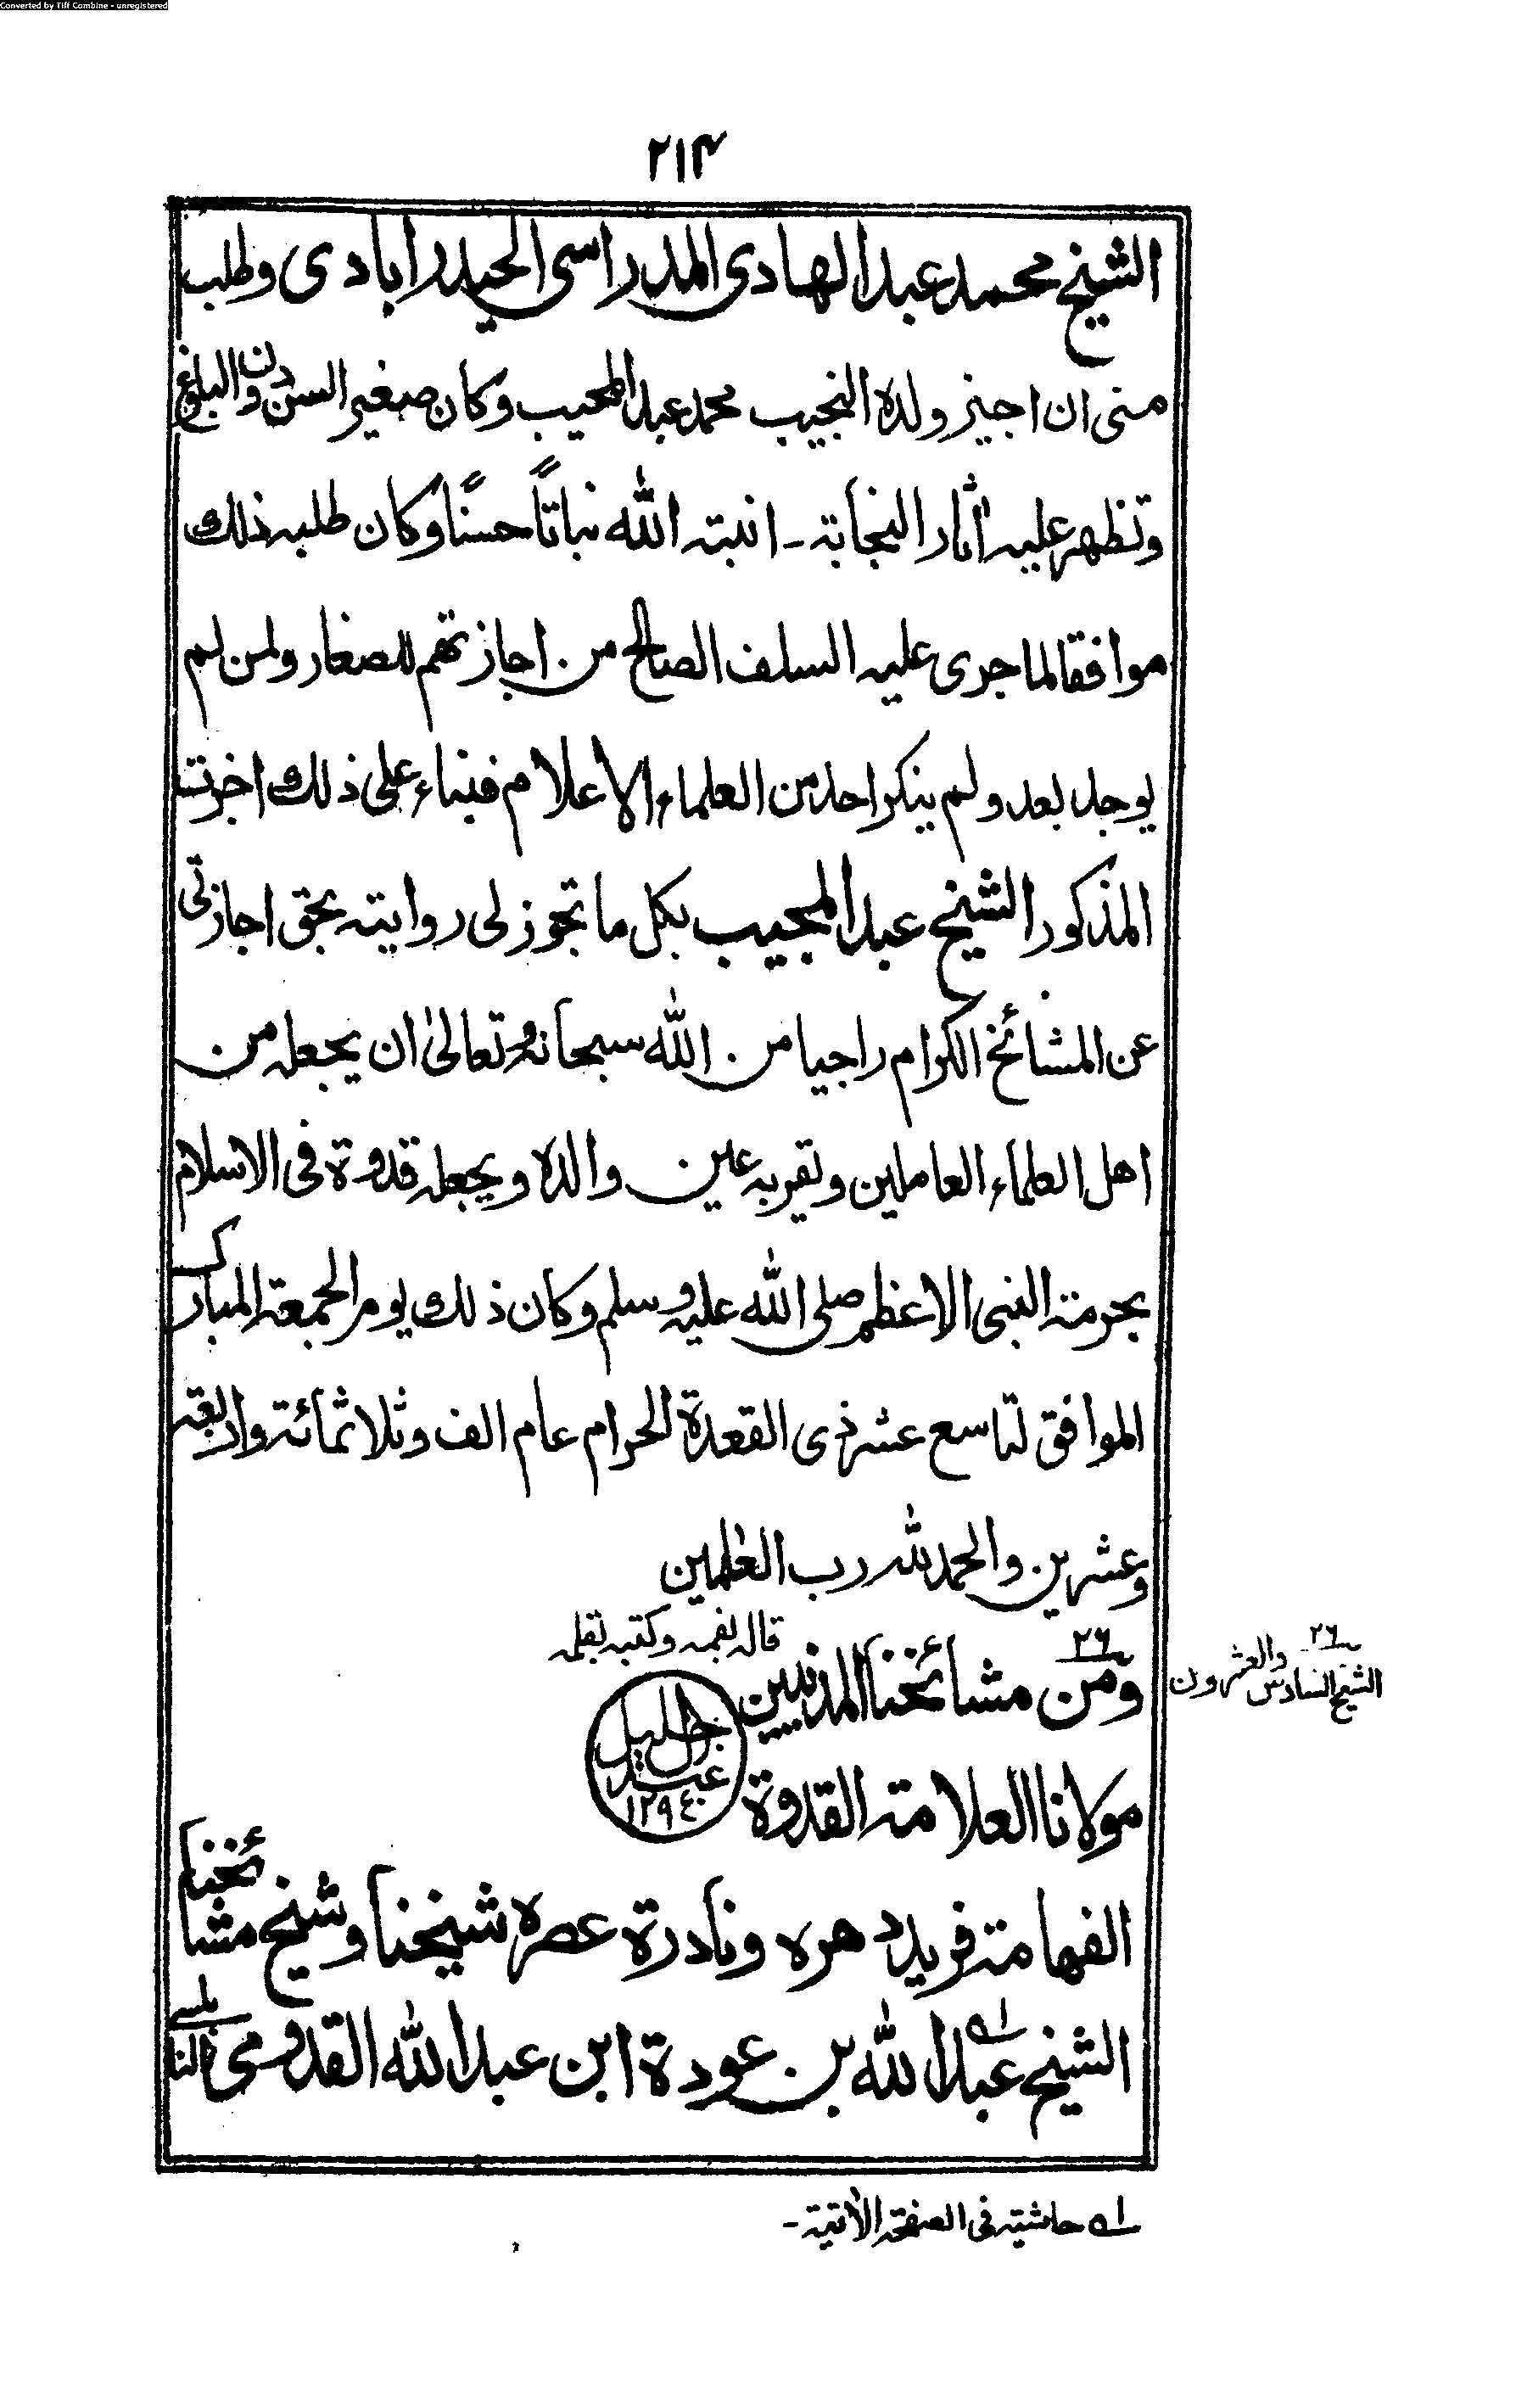 Converted by Tiff Combine - unregistered
٢١٤
الشيخ محمد عبد الهادى المدراسى الحيدرابادى وطلب
منى ان اجيز ولده النجيب محمد عبد المجيب وكان صغير السن دون البلوغ
وتظهر عليه اثار النجابة - انبته الله نباتاً حسنًا وكان طلبه ذلك
موافقا لما جرى عليه السلف الصالح من اجازتهم للصغار ولمن لم
يوجد بعد ولم ينكر احد من العلماء الاعلام فبناء على ذلك اجزت
المذكور الشيخ عبد المجيب بكل ما تجوز لى روايته بحق اجازتى
عن المشائخ الكرام راجيا من الله سبحانه وتعالىٰ ان يجعله من
اهل العلماء العاملين وتقر به عين والده ويجعله قدوة فى الاسلام
بحرمة النبى الاعظم صلى الله عليه وسلم وكان ذلك يوم الجمعة المبارك
الموافق لتاسع عشر ذى القعدة الحرام عام الف وثلاثمائة واربعة
وعشرين والحمد لله رب العٰلمين
قاله بفمه وكتبه بقلمه
عبد الجليل
١٢٩٤
٢٦
ومن مشائخنا المدنيين
٢٦
الشيخ السادس والعشرون
مولانا العلامة القدوة
الفهامة فريد دهره ونادرة عصره شيخنا وشيخ مشائخنا
الشيخ عبد الله بن عودة ابن عبد الله القدومى النابلسى
له حاشيته فى الصفحة الاٰتية -